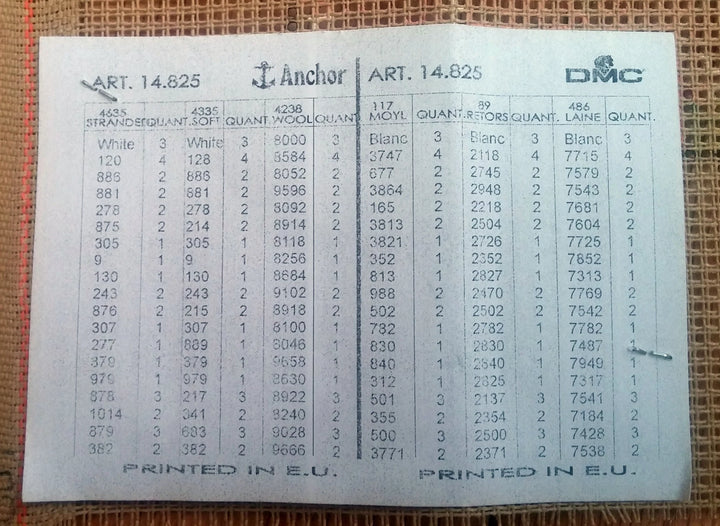 ART. 14.825 Anchor ART. 14.825 DMC
4635 4335 4238 117 89 486
STRANDED QUANT. SOFT QUANT. WOOL QUANT. MOYL QUANT. RETORS QUANT. LAINE QUANT.
White 3 White 3 8000 3 Blanc 3 Blanc 3 Blanc 3
120 4 128 4 8584 4 3747 4 2118 4 7715 4
886 2 886 2 8052 2 677 2 2745 2 7579 2
881 2 881 2 9596 2 3864 2 2948 2 7543 2
278 2 278 2 8092 2 165 2 2218 2 7681 2
875 2 214 2 8914 2 3813 2 2504 2 7604 2
305 1 305 1 8118 1 3821 1 2726 1 7725 1
9 1 9 1 8256 1 352 1 2352 1 7852 1
130 1 130 1 8684 1 813 1 2827 1 7313 1
243 2 243 2 9102 2 988 2 2470 2 7769 2
876 2 215 2 8918 2 502 2 2502 2 7542 2
307 1 307 1 8100 1 782 1 2782 1 7782 1
277 1 889 1 8046 1 830 1 2830 1 7487 1
379 1 379 1 9658 1 840 1 2840 1 7949 1
979 1 979 1 8630 1 312 1 2825 1 7317 1
878 3 217 3 8922 3 501 3 2137 3 7541 3
1014 2 341 2 8240 2 355 2 2354 2 7184 2
879 3 683 3 9028 3 500 3 2500 3 7428 3
382 2 382 2 9666 2 3771 2 2371 2 7538 2
PRINTED IN E.U. PRINTED IN E.U.